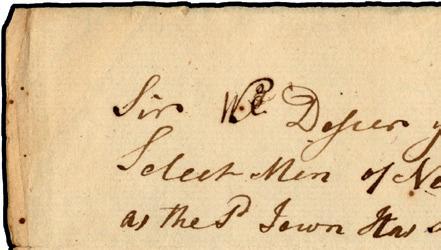 Sir We Desier y
Select Men of Ne
as the Sd Town Has